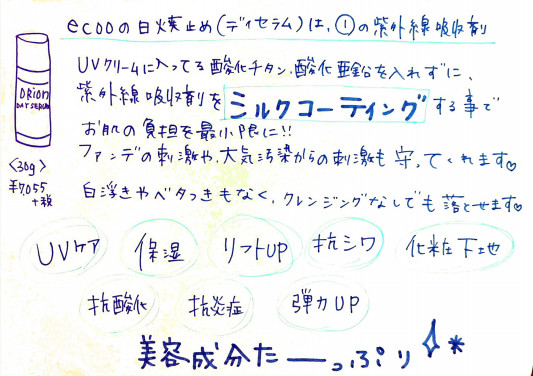 ecooの日焼止め(デイセラム)は、①の紫外線吸収剤
UVクリームに入ってる酸化チタン、酸化亜鉛を入れずに、
紫外線吸収剤をミルクコーティングする事で
お肌の負担を最小限に!!
ファンデの刺激や、大気汚染からの刺激も守ってくれます♡
白浮きやベタつきもなく、クレンジングなしでも落とせます♡
ORION
DAY SERUM
<30g>
¥7,055
+税
UVケア 保湿 リフトUP 抗シワ 化粧下地
抗酸化 抗炎症 弾力UP
美容成分た――っぷり